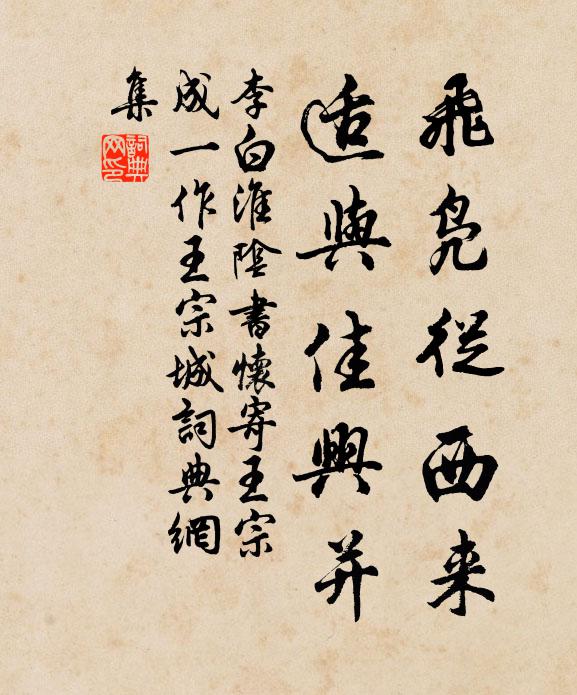 飛鳧從西來
適與佳興并
李白淮陰書懷寄王宗
成一作王宗城詞典網
集
詞典
网印